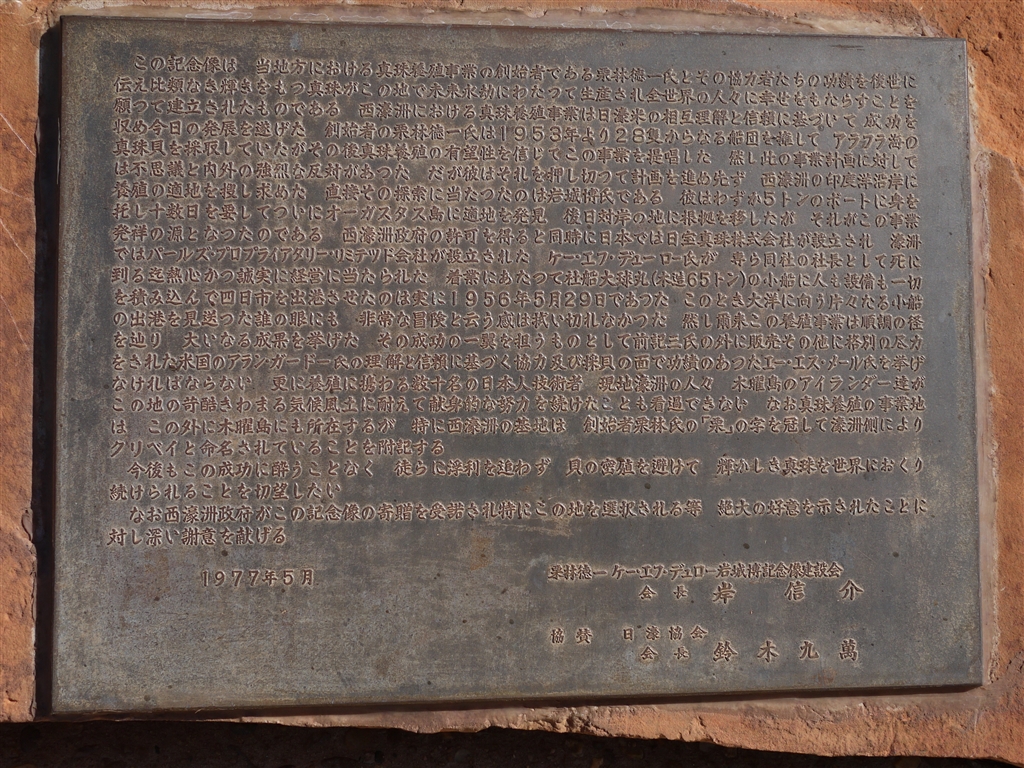 この記念像は 当地方における真珠養殖事業の創始者である栗林徳一氏とその協力者たちの功績を後世に
伝え比類なき輝きをもつ真珠がこの地で未来永劫にわたつて生産され全世界の人々に幸せをもたらすことを
願つて建立されたものである 西濠洲における真珠養殖事業は日濠米の相互理解と信頼に基づいて成功を
収め今日の発展を遂げた 創始者の栗林徳一氏は1953年より28隻からなる船団を擁して アラフラ海の
真珠貝を採取していたがその後真珠養殖の有望性を信じてこの事業を提唱した 然し此の事業計画に対して
は不思議と内外の強烈な反対があつた だが彼はそれを押し切つて計画を進め先ず 西濠洲の印度洋沿岸に
養殖の適地を捜し求めた 直接その探索に当たつたのは岩城博氏である 彼はわずか5トンのボートに身を
託し十数日を要してついにオーガスタス島に適地を発見 後日対岸の地に根拠を移したが それがこの事業
発祥の源となつたのである 西濠洲政府の許可を得ると同時に日本では日宝真珠株式会社が設立され 濠洲
ではパールズ・プロプライアタリー・リミテツド会社が設立された ケー・エフ・デューロー氏が 専ら同社の社長として死に
到る迄熱心かつ誠実に経営に当たられた 着業にあたつて社船大球丸(木造65トン)の小船に人も設備も一切
を積み込んで四日市を出港させたのは実に1956年5月29日であつた このとき大洋に向う片々たる小船
の出港を見送つた誰の眼にも 非常な冒険と云う感は拭い切れなかつた 然し爾来この養殖事業は順調の径
を辿り 大いなる成果を挙げた その成功の一翼を担うものとして前記三氏の外に販売その他に格別の尽力
をされた米国のアラン・ガードー氏の理解と信頼に基づく協力及び採貝の面で功績のあつたエー・エス・メール氏を挙げ
なければならない 更に養殖に携わる数十名の日本人技術者 現地濠洲の人々 木曜島のアイランダー達が
この地の苛酷きわまる気候風土に耐えて献身的な努力を続けたことも看過できない なお真珠養殖の事業地
は この外に木曜島にも所在するが 特に西濠洲の基地は 創始者栗林氏の「栗」の字を冠して濠洲側により
クリベイと命名されていることを附記する
今後もこの成功に酔うことなく 徒らに浮利を追わず 貝の密殖を避けて 輝かしき真珠を世界におくり
続けられることを切望したい
なお西濠洲政府がこの記念像の寄贈を受諾され特にこの地を選択される等 絶大の好意を示されたことに
対し深い謝意を献げる
1977年5月
栗林徳一 ケー・エフ・デュロー 岩城博記念像建設会
会長 岸信介
協賛 日濠協会
会長 鈴木九萬